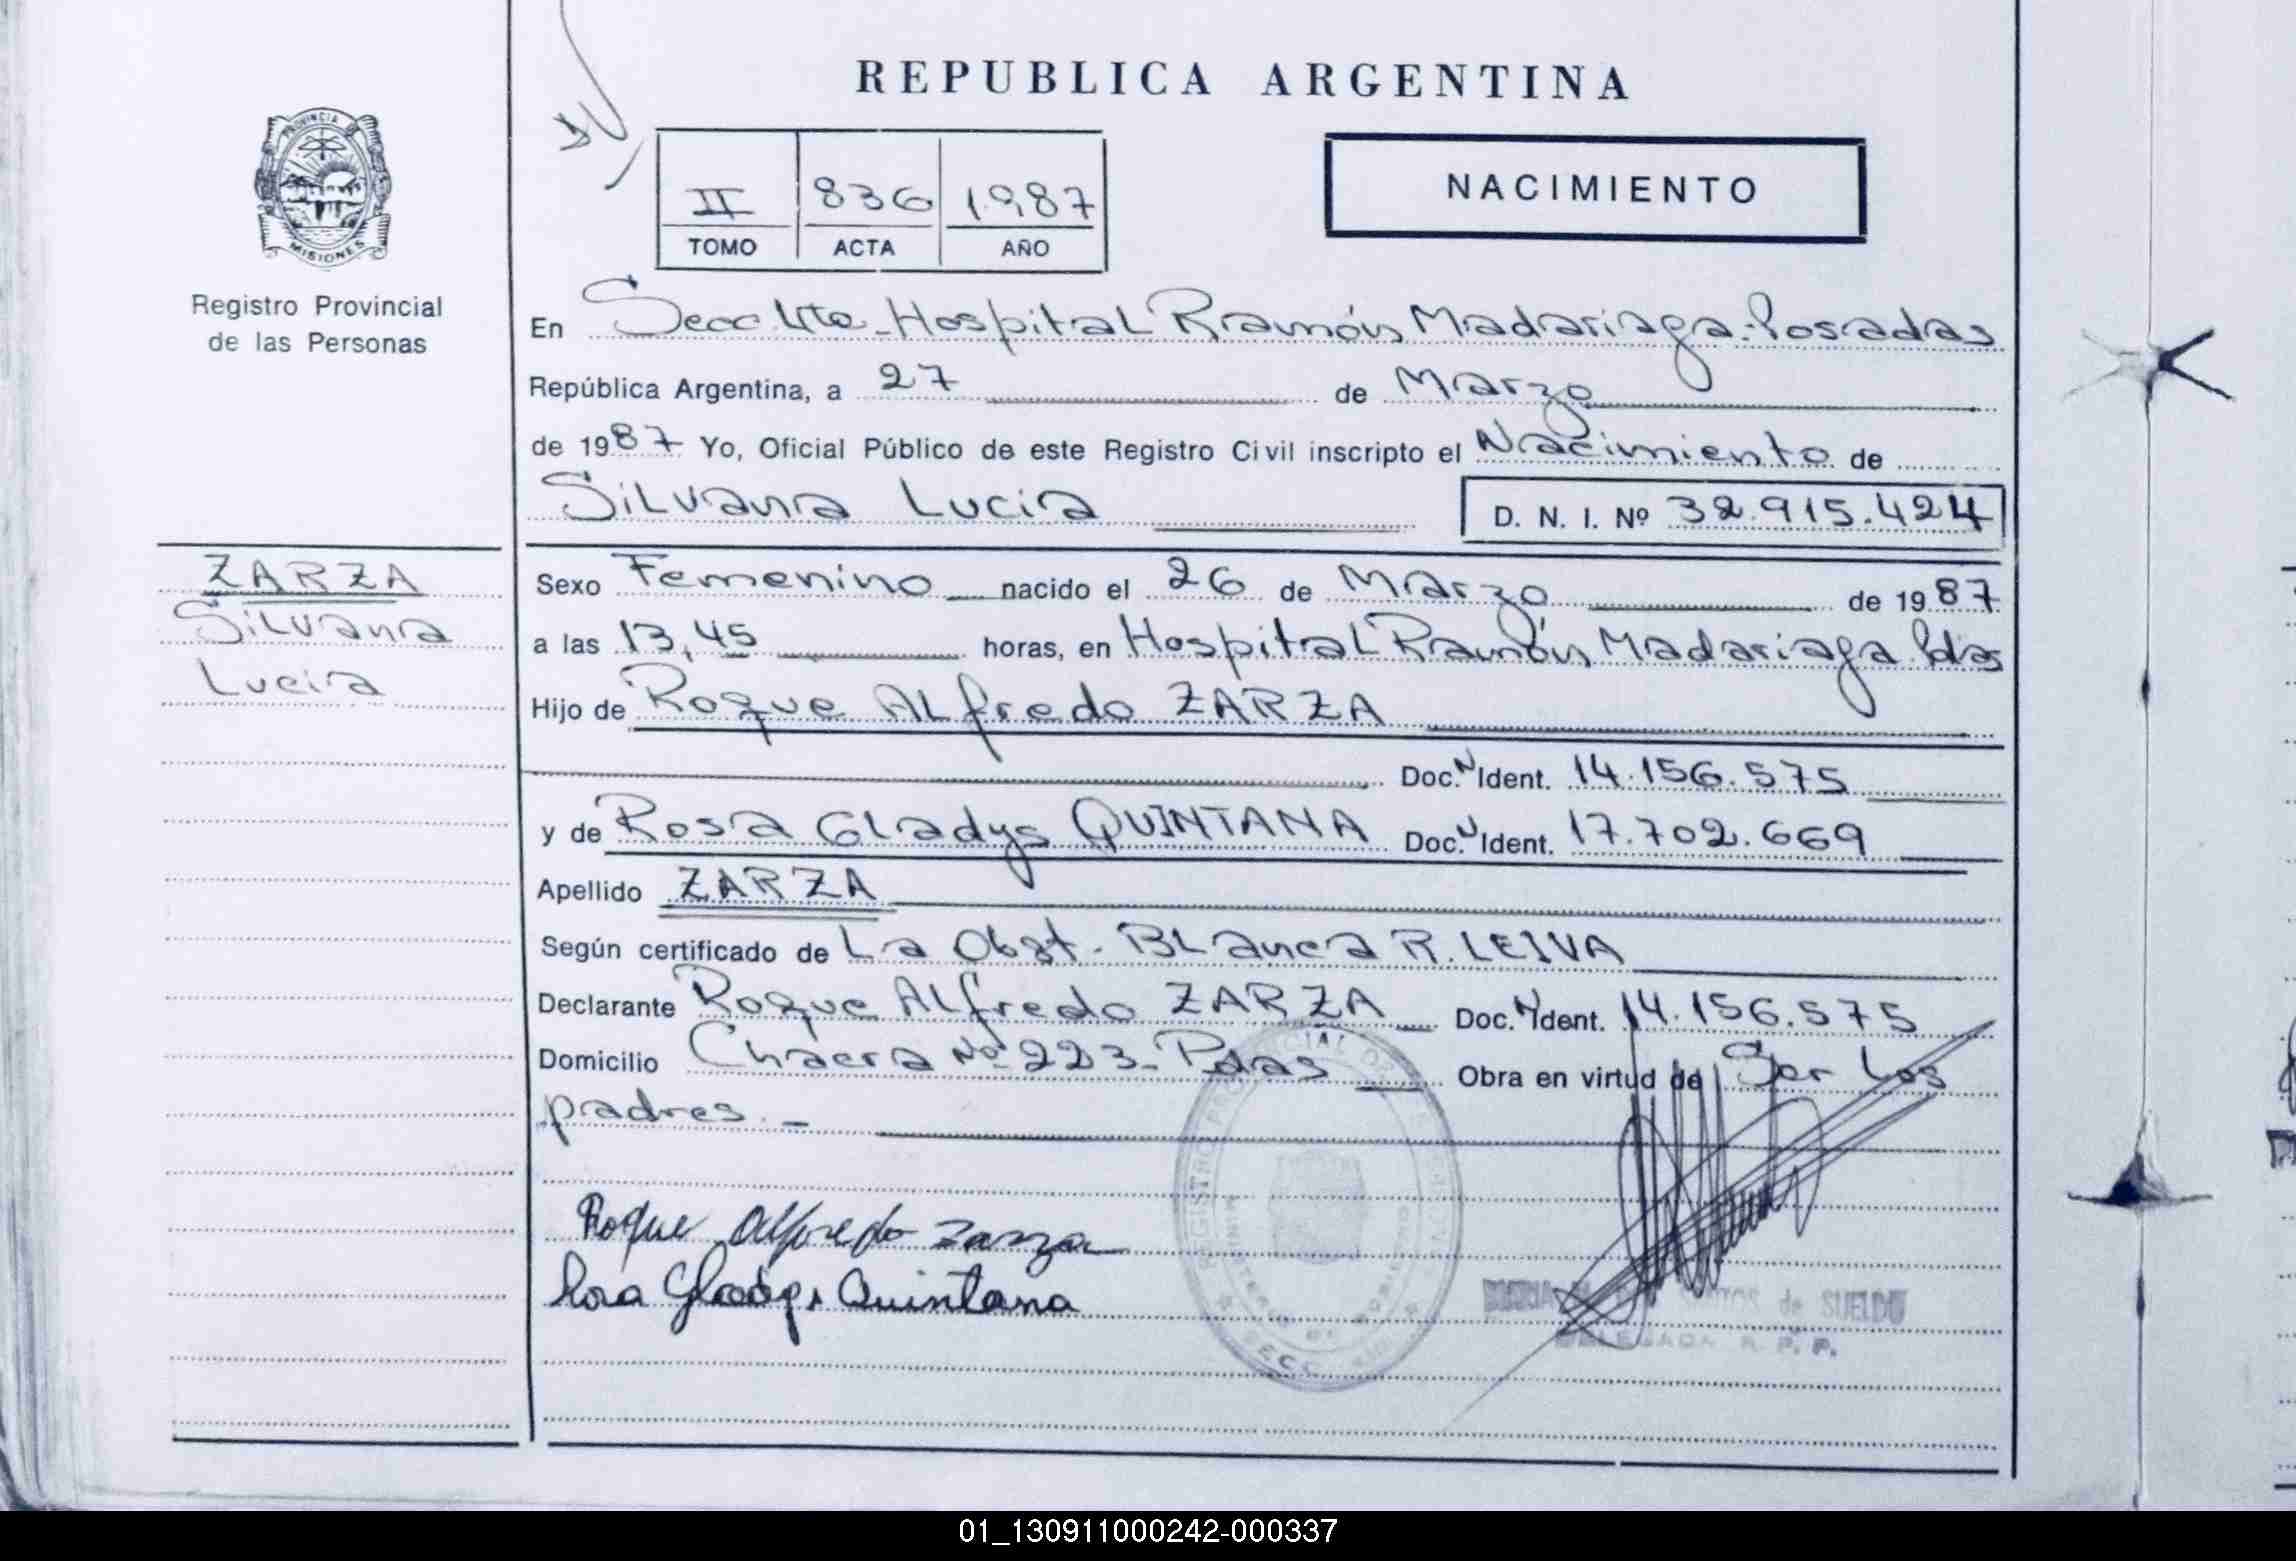 REPUBLICA ARGENTINA
PROVINCIA DE
MISIONES
II 836 1987
TOMO ACTA AÑO
NACIMIENTO
Registro Provincial
de las Personas
En Secc. 4ta - Hospital Ramón Madariaga - Posadas
República Argentina, a 27 de Marzo
de 1987 Yo, Oficial Público de este Registro Civil inscripto el Nacimiento de
Silvana Lucia D. N. I. Nº 32.915.424
ZARZA
Silvana
Lucia
Sexo Femenino nacido el 26 de Marzo de 1987
a las 13,45 horas, en Hospital Ramón Madariaga Pdas
Hijo de Roque Alfredo ZARZA
Doc. N Ident. 14.156.575
y de Rosa Gladys QUINTANA Doc. N Ident. 17.702.669
Apellido ZARZA
Según certificado de La Obst. Blanca R. LEIVA
Declarante Roque Alfredo ZARZA Doc. N Ident. 14.156.575
Domicilio Chacra Nº 223 - Pdas Obra en virtud de Ser Los
padres. -
Roque Alfredo Zarza
Rosa Gladys Quintana
REGISTRO PROVINCIAL DE
SECC
de SUELDO
DELEGADA R. P. P.
01_130911000242-000337